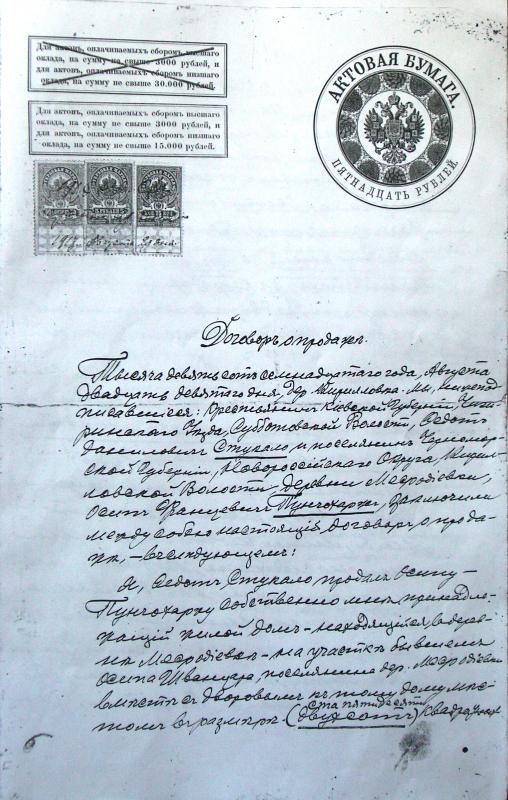 Для актовъ, оплачиваемыхъ сборомъ высшаго
оклада, на сумму не свыше 3000 рублей, и
для актовъ, оплачиваемыхъ сборомъ низшаго
оклада, на сумму не свыше 30.000 рублей.
Для актовъ, оплачиваемыхъ сборомъ высшаго
оклада, на сумму не свыше 3000 рублей, и
для актовъ, оплачиваемыхъ сборомъ низшаго
оклада, на сумму не свыше 15.000 рублей.
АКТОВАЯ БУМАГА.
ПЯТНАДЦАТЬ РУБЛЕЙ.
Договоръ о продажѣ.
Тысяча девятьсотъ семнадцатаго года, Августа
двадцать девятаго дня, дер. Кирилловка. Мы, нижепод-
писавшіеся: Крестьянинъ Кіевской Губерніи, Чиги-
ринскаго Уѣзда, Субботовской Волости, Ѳедотъ
Даниловичъ Стукало и поселянинъ Черномор-
ской Губерніи, Новороссійскаго Округа, Кирил-
ловской Волости деревни Меѳодіевки,
Осипъ Францевичъ Пунчохаржъ, заключили
между собою настоящій договоръ о прода-
жѣ, – въ слѣдующемъ:
Я, Ѳедотъ Стукало, продалъ Осипу
Пунчохаржу собственно мнѣ принадле-
жащій жилой домъ – находящійся въ дерев-
нѣ Меѳодіевкѣ – на участкѣ бывшемъ
Осипа Швандара, поселянина дер. Меѳодіевки
вмѣстѣ съ дворовымъ къ тому дому мѣс-
томъ въ размѣрѣ (двухсотъ) ста пятидесяти квадратныхъ